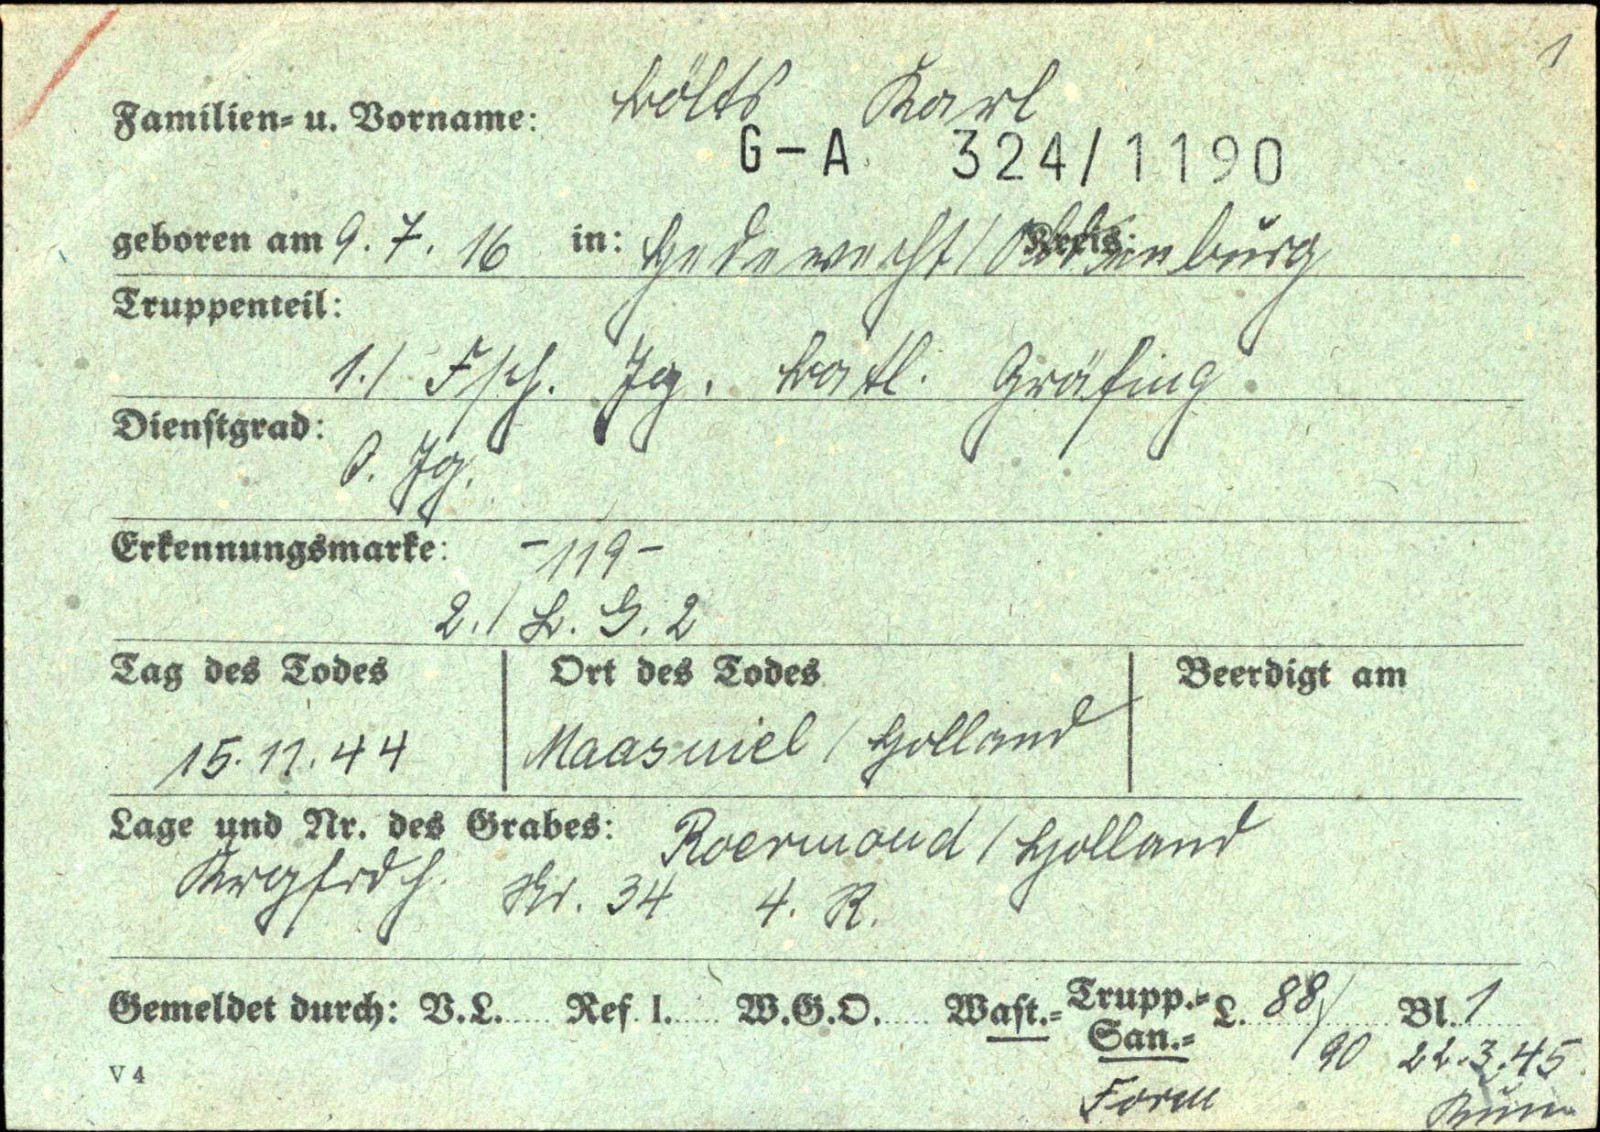 1
Familien- u. Vorname: Bölts Karl
G-A 324/1190
geboren am 9. 7. 16 in: Hedewecht / Oldenburg Kreis:
Truppenteil:
1./ Fsch. Jg. Batl. Gräfing
Dienstgrad:
O. Jg.
Erkennungsmarke: -119-
2./ L. G. 2
Tag des Todes Ort des Todes Beerdigt am
15.11.44 Maasniel / Holland
Lage und Nr. des Grabes: Roermond / Holland
Krgfrdh. Nr. 34 4. R.
Gemeldet durch: V.L..... Ref. I..... W.G.O..... Wast.= Trupp.= San.= L. 88/90 Bl. 1
22.3.45
V 4
Form